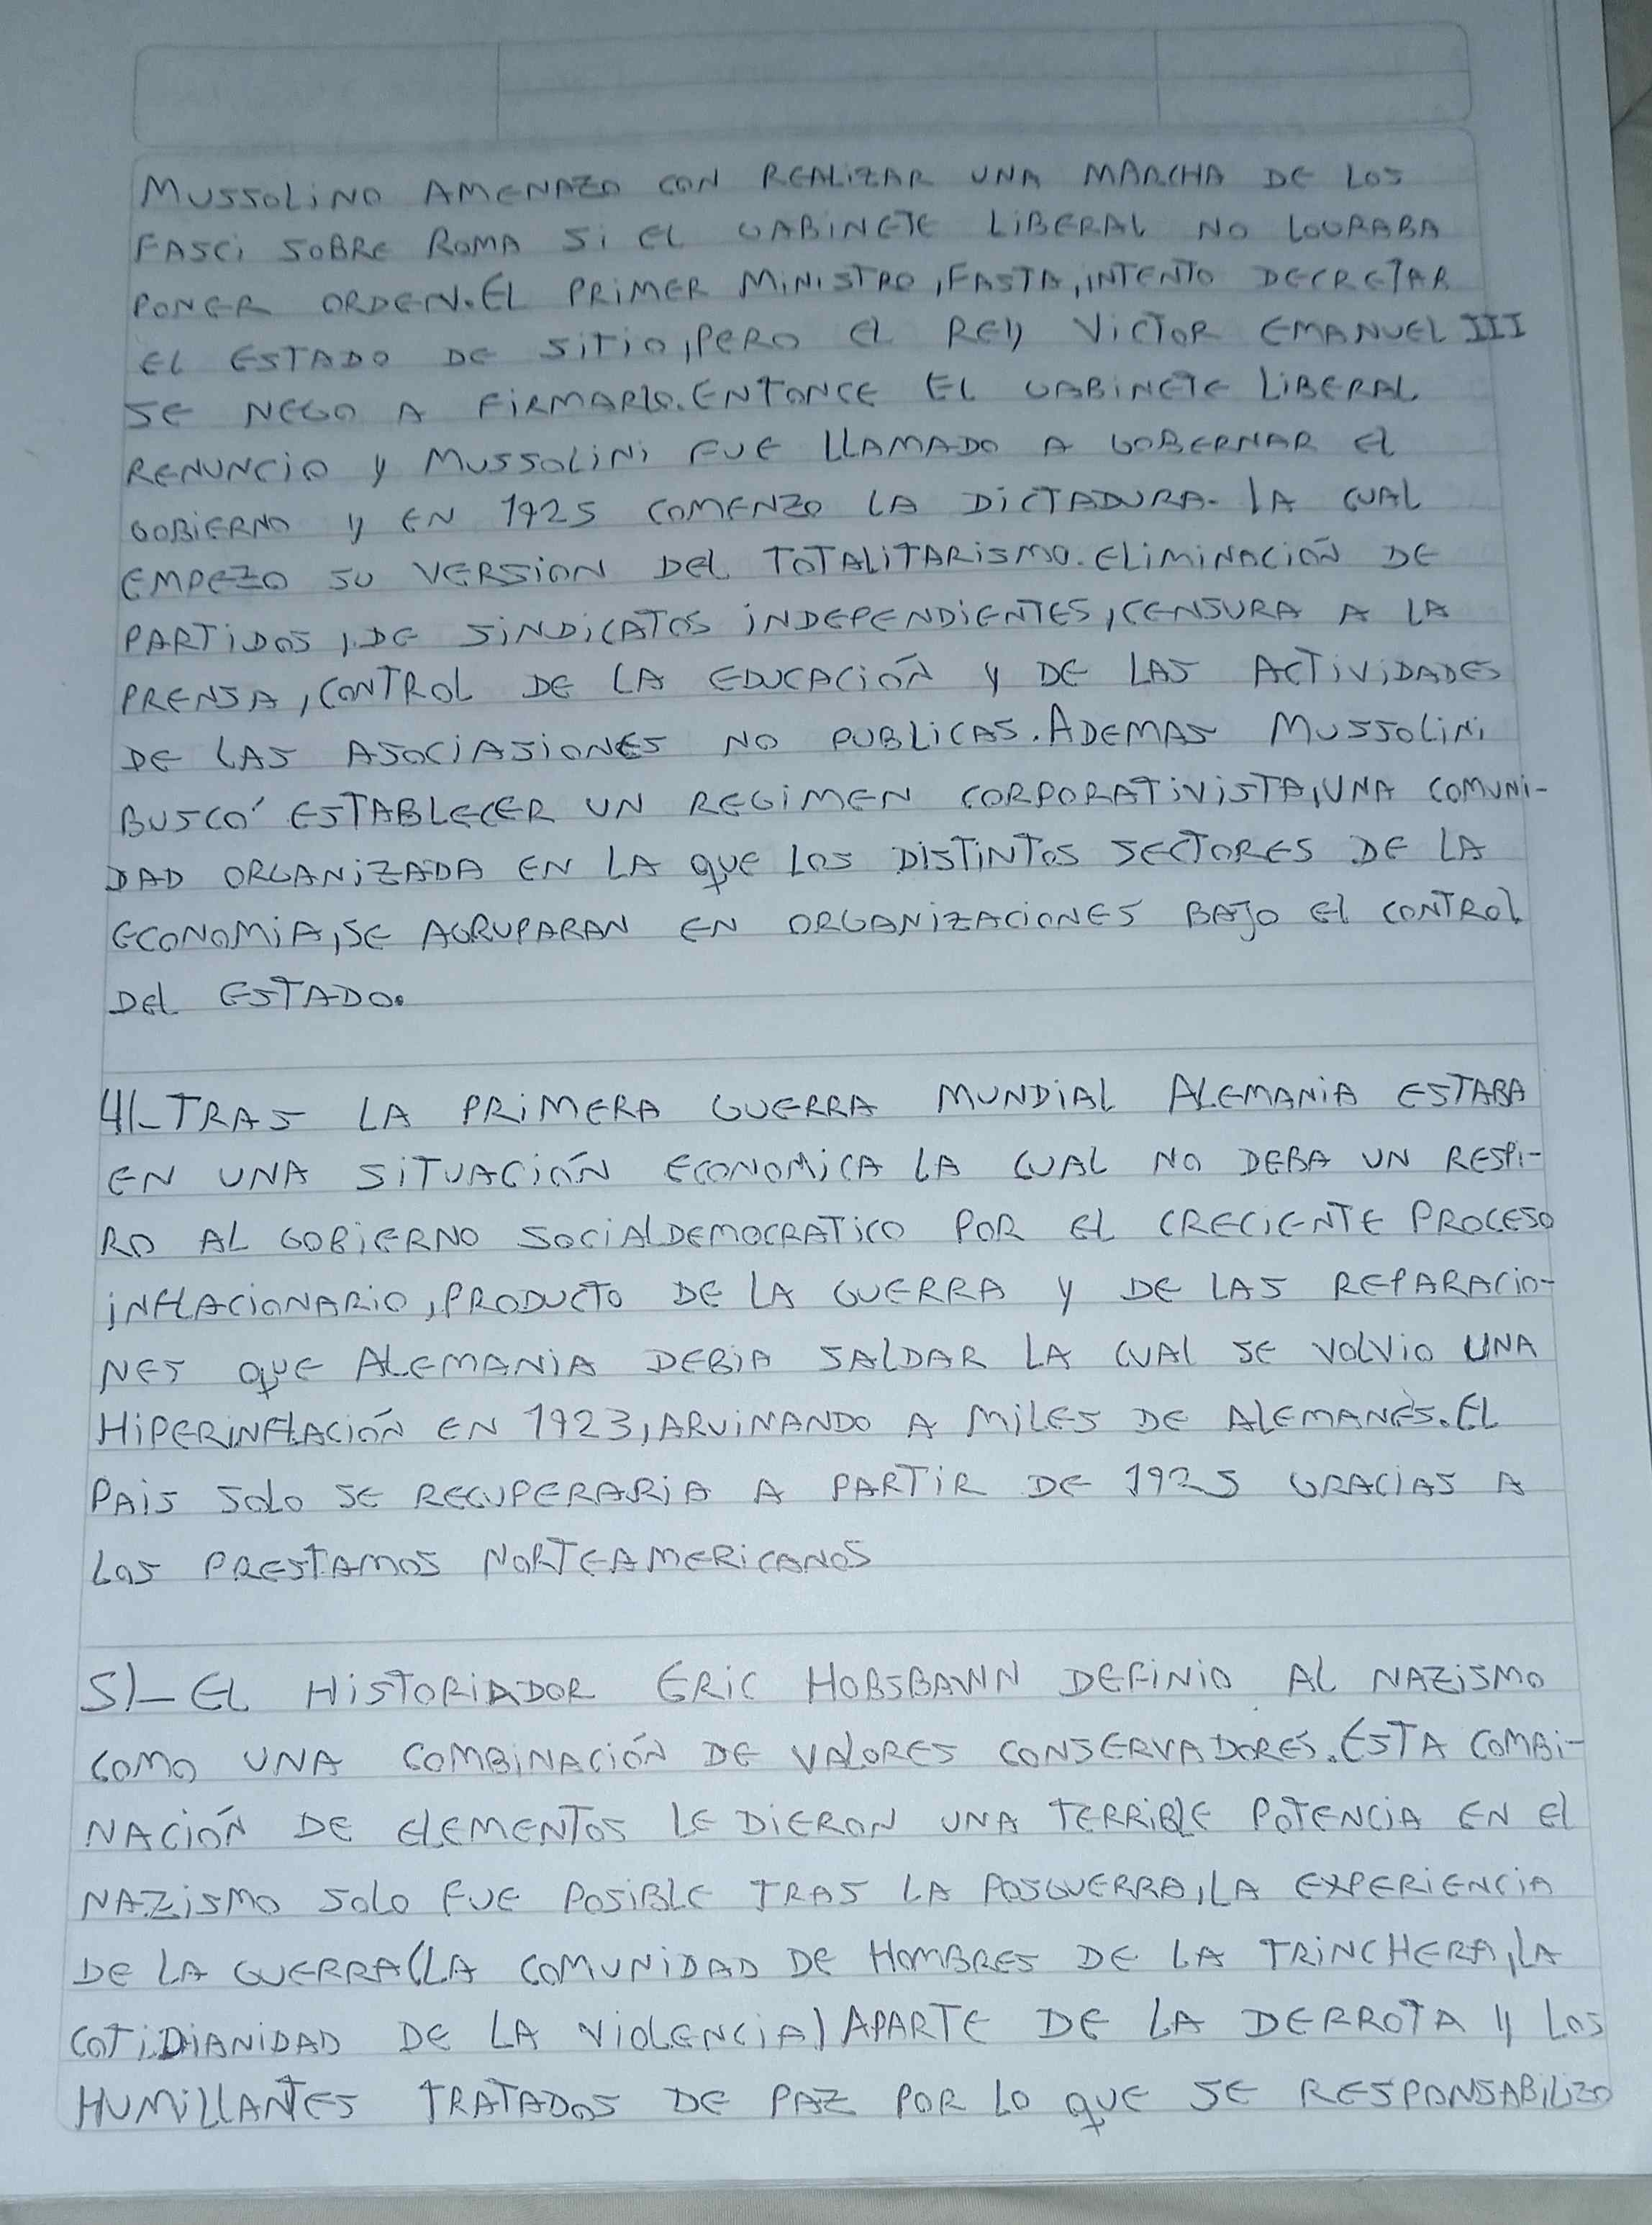 MUSSOLINO AMENAZO CON REALIZAR UNA MARCHA DE LOS
FASCI SOBRE ROMA SI EL GABINETE LIBERAL NO LOGRABA
PONER ORDEN. EL PRIMER MINISTRO, FASTA, INTENTO DECRETAR
EL ESTADO DE SITIO, PERO EL REY VICTOR EMANUEL III
SE NEGO A FIRMARLO. ENTONCE EL GABINETE LIBERAL
RENUNCIO Y MUSSOLINI FUE LLAMADO A GOBERNAR EL
GOBIERNO Y EN 1925 COMENZO LA DICTADURA. LA CUAL
EMPEZO SU VERSION DEL TOTALITARISMO. ELIMINACIÓN DE
PARTIDOS, DE SINDICATOS INDEPENDIENTES, CENSURA A LA
PRENSA, CONTROL DE LA EDUCACIÓN Y DE LAS ACTIVIDADES
DE LAS ASOCIASIONES NO PUBLICAS. ADEMAS MUSSOLINI
BUSCÓ ESTABLECER UN REGIMEN CORPORATIVISTA, UNA COMUNI-
DAD ORGANIZADA EN LA QUE LOS DISTINTOS SECTORES DE LA
ECONOMIA, SE AGRUPARAN EN ORGANIZACIONES BAJO EL CONTROL
DEL ESTADO.
4)_TRAS LA PRIMERA GUERRA MUNDIAL ALEMANIA ESTABA
EN UNA SITUACIÓN ECONOMICA LA CUAL NO DEBA UN RESPI-
RO AL GOBIERNO SOCIALDEMOCRATICO POR EL CRECIENTE PROCESO
INFLACIONARIO, PRODUCTO DE LA GUERRA Y DE LAS REPARACIO-
NES QUE ALEMANIA DEBIA SALDAR LA CUAL SE VOLVIO UNA
HIPERINFLACIÓN EN 1923, ARUINANDO A MILES DE ALEMANES. EL
PAIS SOLO SE RECUPERARIA A PARTIR DE 1925 GRACIAS A
LOS PRESTAMOS NORTEAMERICANOS
5)_ EL HISTORIADOR ERIC HOBSBAWN DEFINIO AL NAZISMO
COMO UNA COMBINACIÓN DE VALORES CONSERVADORES. ESTA COMBI-
NACIÓN DE ELEMENTOS LE DIERON UNA TERRIBLE POTENCIA EN EL
NAZISMO SOLO FUE POSIBLE TRAS LA POSGUERRA, LA EXPERIENCIA
DE LA GUERRA (LA COMUNIDAD DE HOMBRES DE LA TRINCHERA, LA
COTIDIANIDAD DE LA VIOLENCIA) APARTE DE LA DERROTA Y LOS
HUMILLANTES TRATADOS DE PAZ POR LO QUE SE RESPONSABILIZO